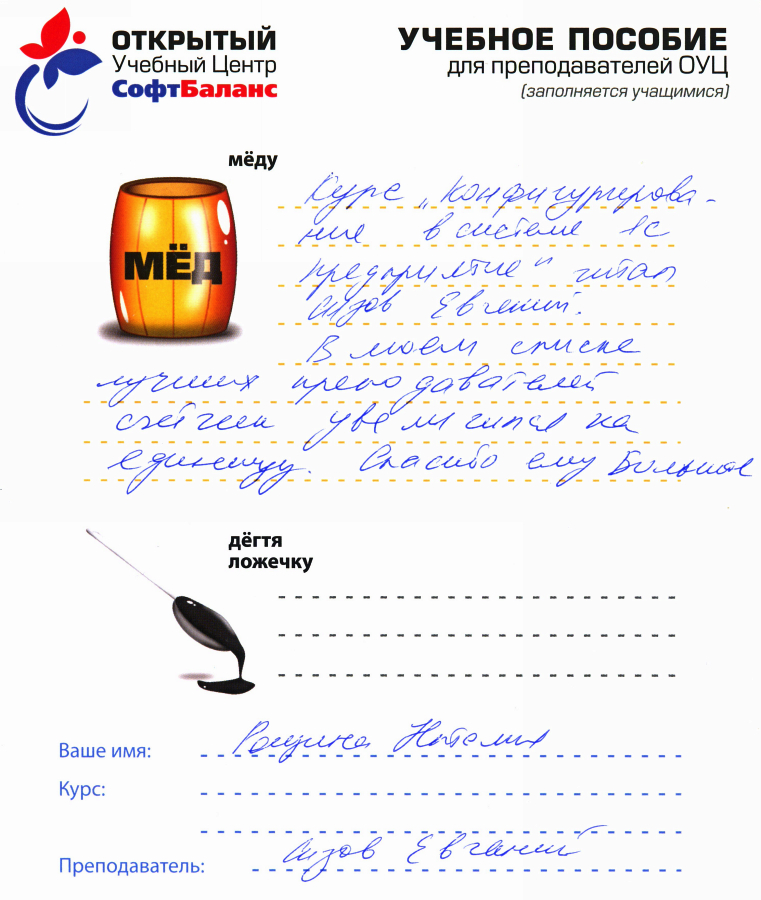 ОТКРЫТЫЙ
Учебный Центр
СофтБаланс
УЧЕБНОЕ ПОСОБИЕ
для преподавателей ОУЦ
(заполняется учащимися)
мёду
МЁД
Курс „Конфигурирова-
ние в системе 1С
предприятие" читал
Сизов Евгений.
В моем списке
лучших преподавателей
счётчик увеличился на
единицу. Спасибо ему Большое
дёгтя
ложечку
Ваше имя: Наталия
Курс:
Преподаватель: Сизов Евгений